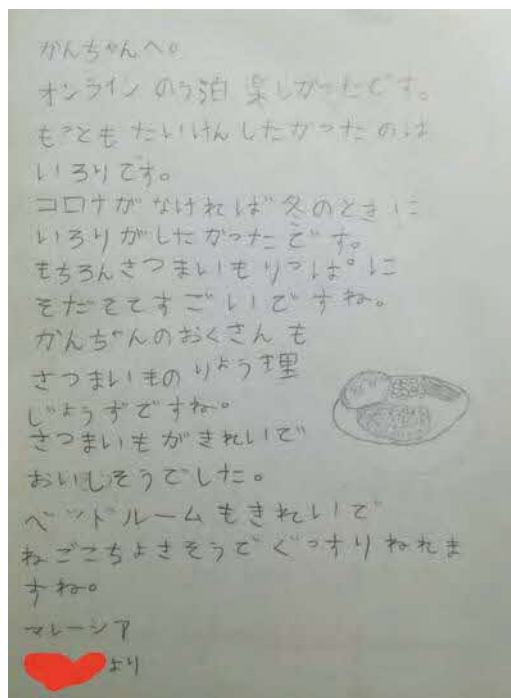 かんちゃんへ。
オンラインのう泊楽しかったです。
もっともたいけんしたかったのは
いろりです。
コロナがなければ冬のときに
いろりがしたかったです。
もちろんさつまいもりっぱに
そだててすごいですね。
かんちゃんのおくさんも
さつまいものりょう理
じょうずですね。
さつまいもがきれいで
おいしそうでした。
ベッドルームもきれいで
ねごこちよさそうでぐっすりねれま
すね。
マレーシア
より